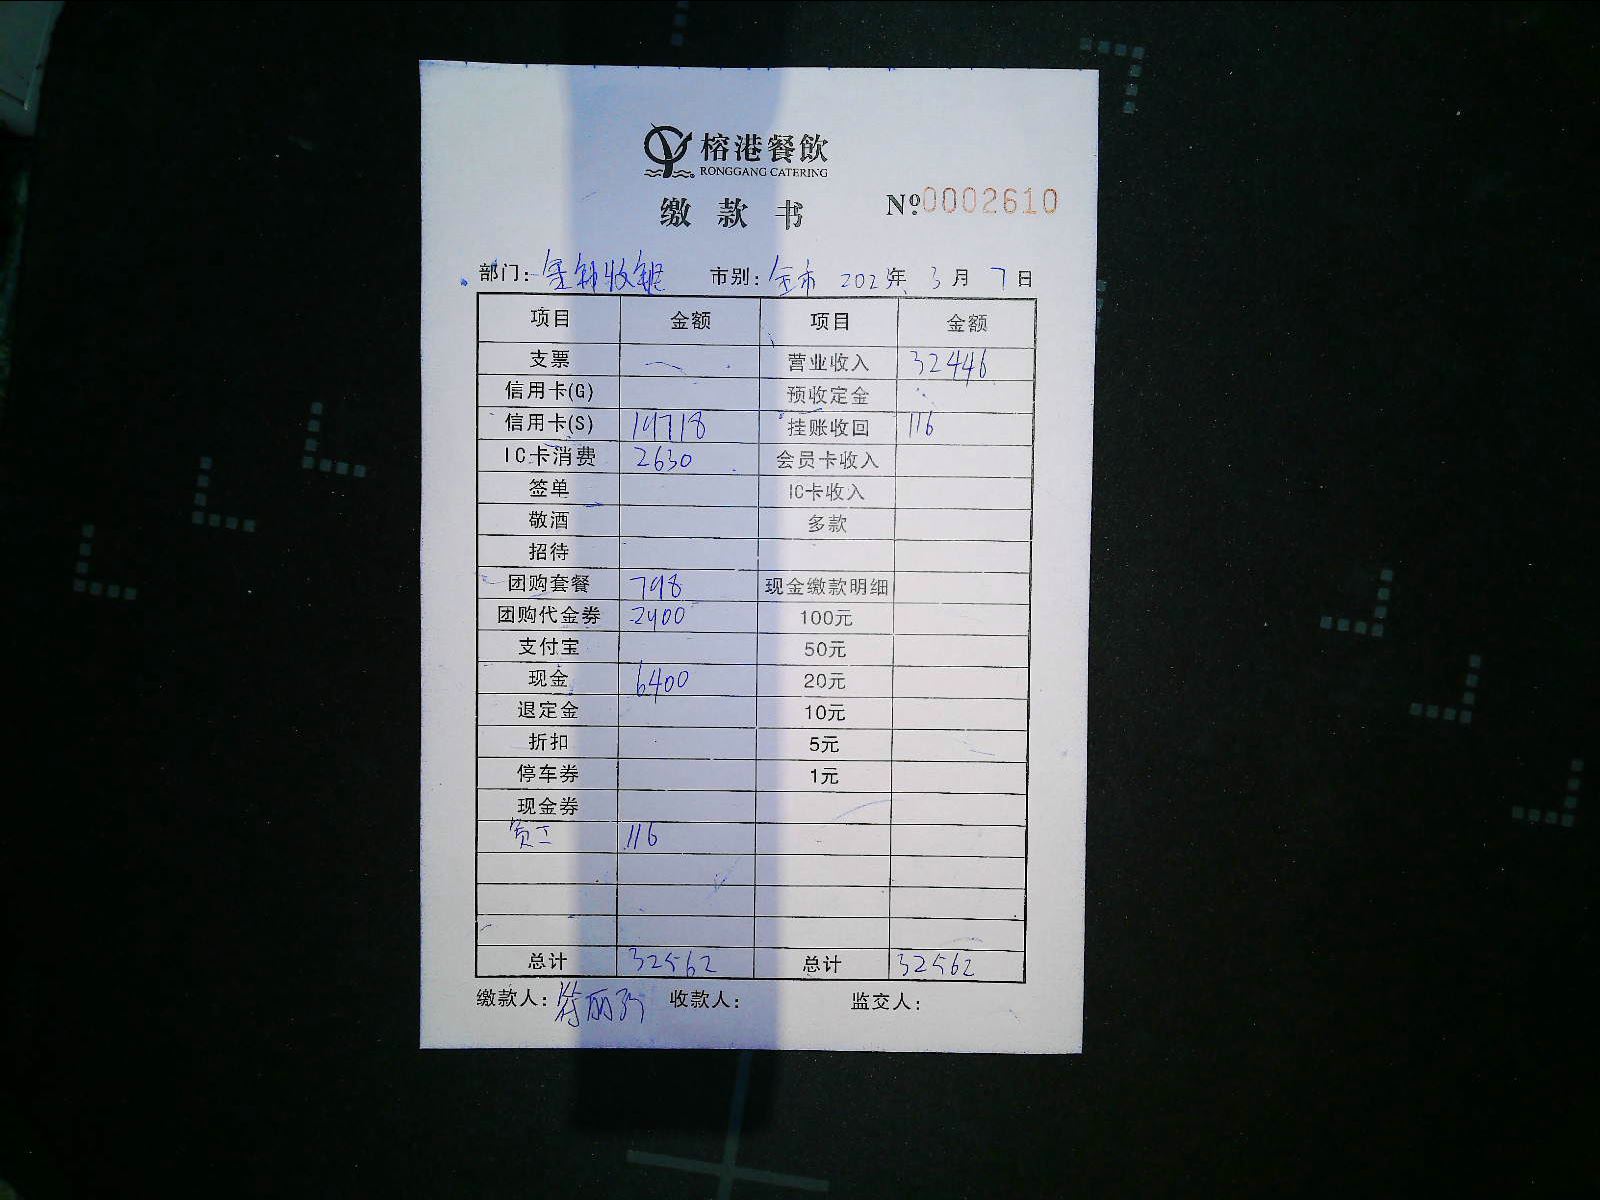 榕港餐飲
RONGGANG CATERING
缴款书
№0002610
部门: 收银 市别: 全市 2023年 3月 7日
项目 金额 项目 金额
支票 营业收入 32446
信用卡(G) 预收定金
信用卡(S) 19718 挂账收回 116
IC卡消费 2630 会员卡收入
签单 IC卡收入
敬酒 多款
招待
团购套餐 798 现金缴款明细
团购代金券 2900 100元
支付宝 50元
现金 6400 20元
退定金 10元
折扣 5元
停车券 1元
现金券
员工 116
总计 32562 总计 32562
缴款人: 收款人: 监交人: